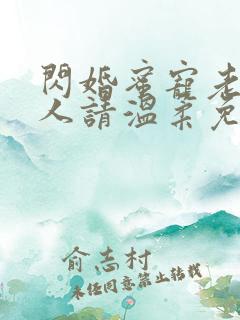 閃婚蜜寵老
人請溫柔免
俞志村
未經同意禁止轉載